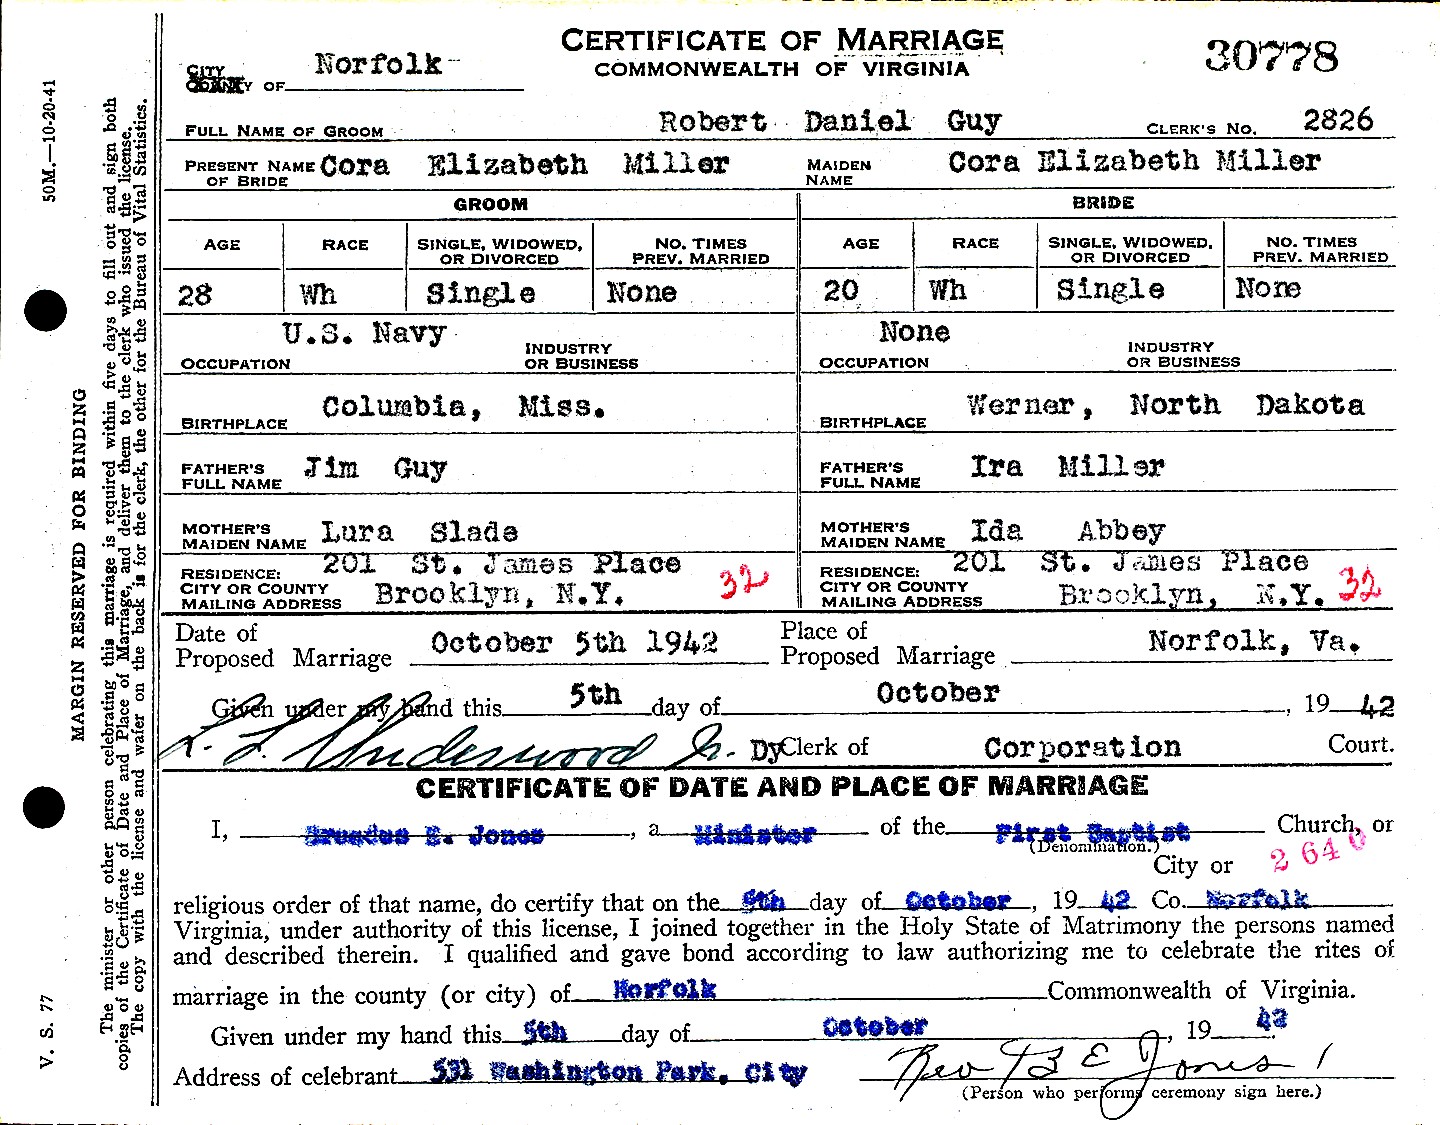 CERTIFICATE OF MARRIAGE
COMMONWEALTH OF VIRGINIA
30778
CITY
COUNTY OF Norfolk
FULL NAME OF GROOM Robert Daniel Guy CLERK'S NO. 2826
PRESENT NAME OF BRIDE Cora Elizabeth Miller MAIDEN NAME Cora Elizabeth Miller
GROOM BRIDE
AGE RACE SINGLE, WIDOWED, OR DIVORCED NO. TIMES PREV. MARRIED AGE RACE SINGLE, WIDOWED, OR DIVORCED NO. TIMES PREV. MARRIED
28 Wh Single None 20 Wh Single None
U.S. Navy None
OCCUPATION INDUSTRY OR BUSINESS OCCUPATION INDUSTRY OR BUSINESS
BIRTHPLACE Columbia, Miss. BIRTHPLACE Werner, North Dakota
FATHER'S FULL NAME Jim Guy FATHER'S FULL NAME Ira Miller
MOTHER'S MAIDEN NAME Lura Slade MOTHER'S MAIDEN NAME Ida Abbey
RESIDENCE: 201 St. James Place RESIDENCE: 201 St. James Place
CITY OR COUNTY MAILING ADDRESS Brooklyn, N.Y. 32 CITY OR COUNTY MAILING ADDRESS Brooklyn, N.Y. 32
Date of Proposed Marriage October 5th 1942 Place of Proposed Marriage Norfolk, Va.
Given under my hand this 5th day of October, 19 42
L. L. Underwood Jr. Dy Clerk of Corporation Court.
CERTIFICATE OF DATE AND PLACE OF MARRIAGE
I, E. Jones, a Minister of the First Baptist Church, or
(Denomination.)
City or 2640
religious order of that name, do certify that on the 5th day of October, 19 42 Co. Norfolk
Virginia, under authority of this license, I joined together in the Holy State of Matrimony the persons named
and described therein. I qualified and gave bond according to law authorizing me to celebrate the rites of
marriage in the county (or city) of Norfolk Commonwealth of Virginia.
Given under my hand this 5th day of October, 19 42
Address of celebrant 531 Washington Park, City Rev B E Jones
(Person who performs ceremony sign here.)
50M.—10-20-41
MARGIN RESERVED FOR BINDING
V. S. 77
The minister or other person celebrating this marriage is required within five days to fill out and sign both
copies of the Certificate of Date and Place of Marriage, and deliver them to the clerk who issued the license.
The copy with the license and wafer on the back is for the clerk, the other for the Bureau of Vital Statistics.